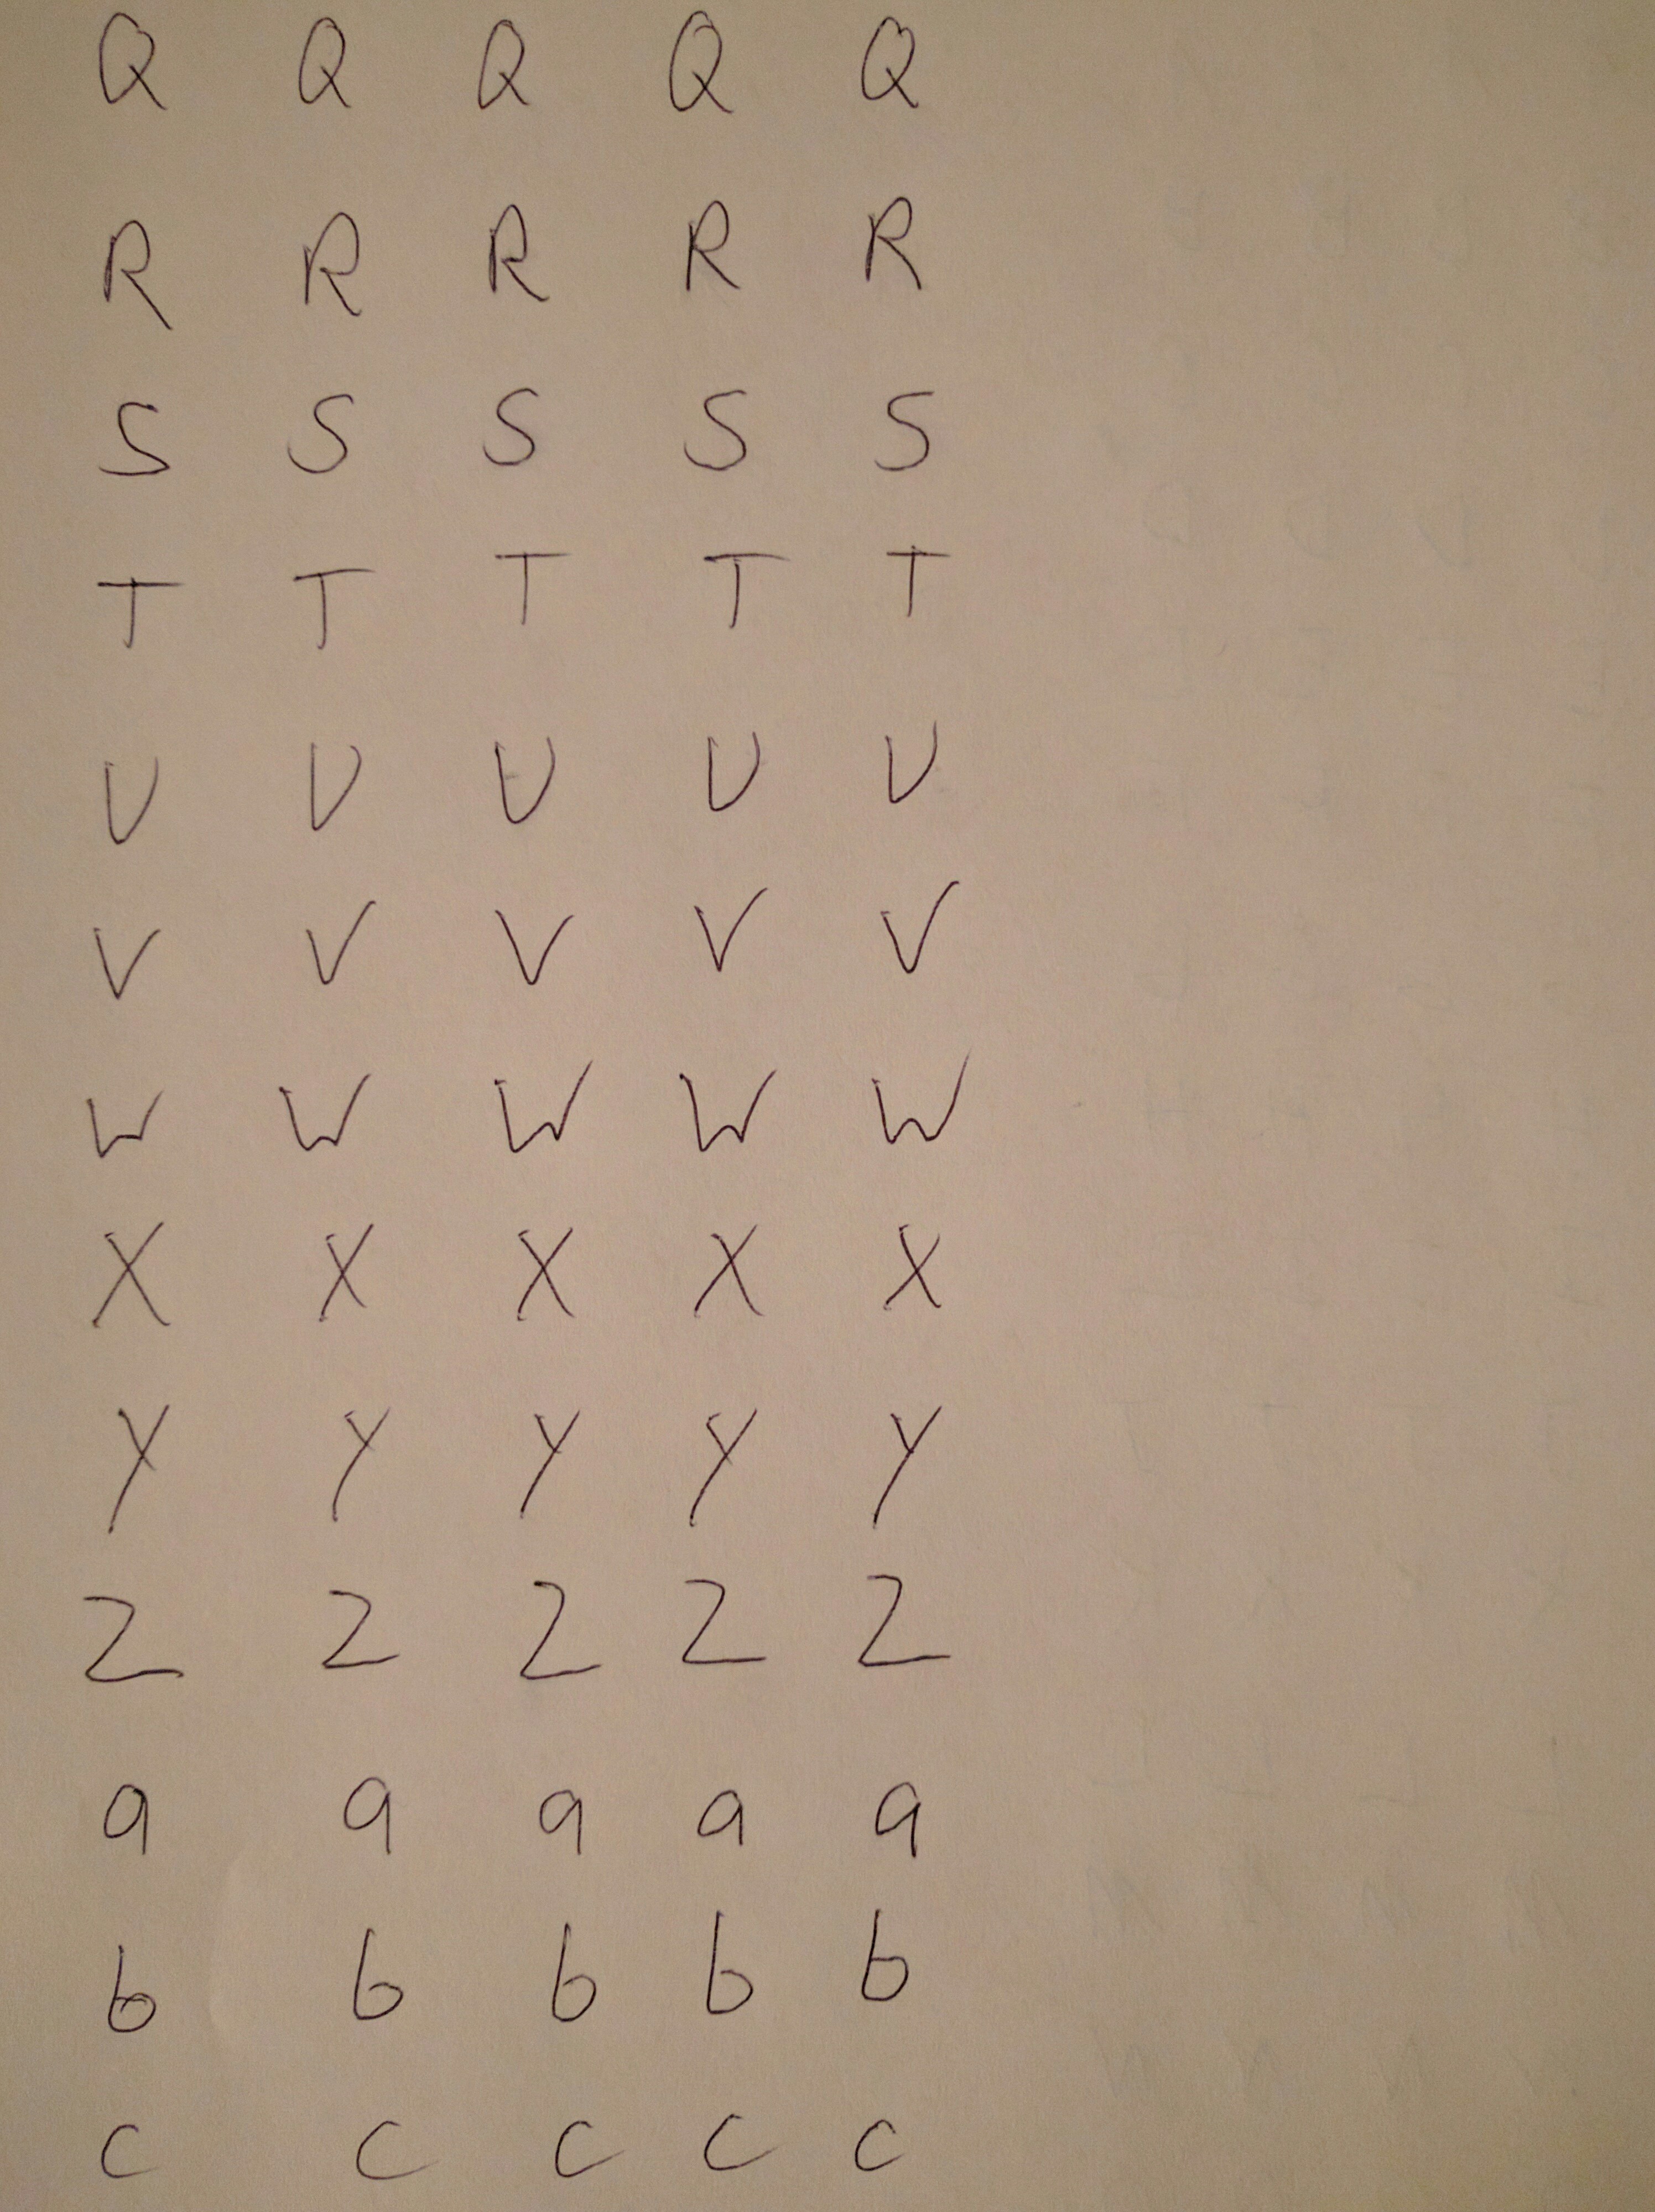 Q Q Q Q Q
R R R R R
S S S S S
T T T T T
U U U U U
V V V V V
W W W W W
X X X X X
Y Y Y Y Y
Z Z Z Z Z
a a a a a
b b b b b
c c c c c